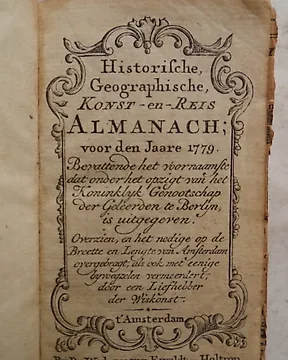 Historische,
Geographische,
Konst-en-Reis
ALMANACH;
voor den Jaare 1779.
Bevattende het voornaamste
dat onder het opzigt van het
Koninklijk Genootschap
der Geleerden te Berlyn,
is uitgegeven.
Overzien, en het nodige op de
Breette en Lengte van Amsterdam
overgebragt, als ook met eenige
byvoegselen vermeerdert,
door een Liefhebber
der Wiskonst.
t'Amsterdam
Holtrop